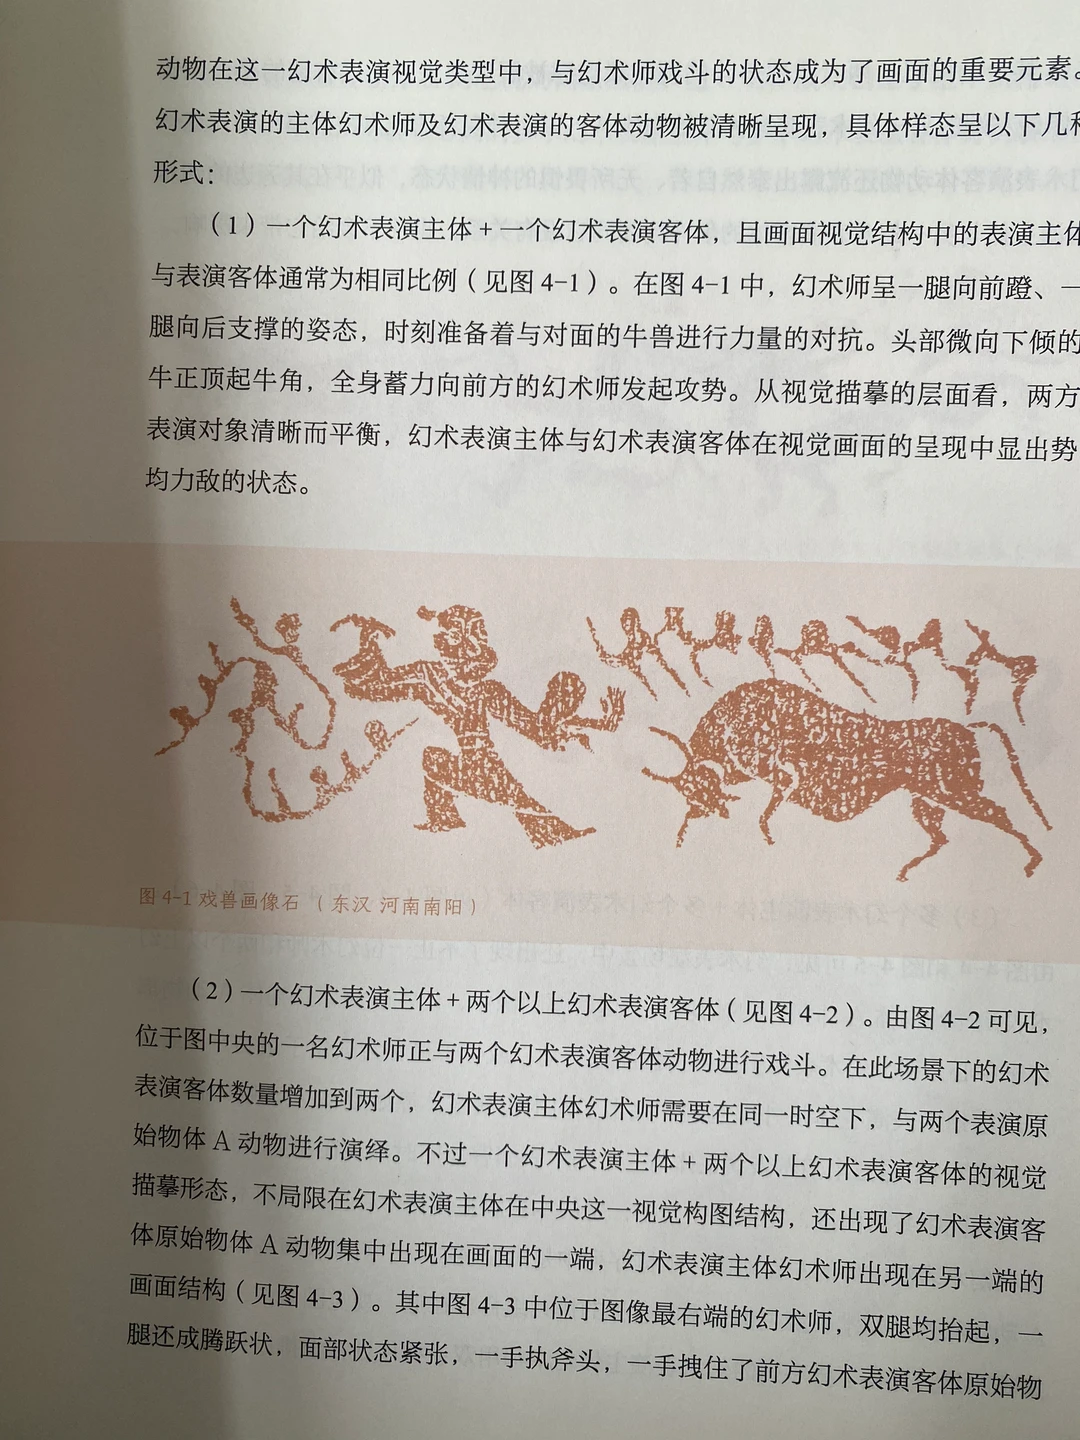 动物在这一幻术表演视觉类型中，与幻术师戏斗的状态成为了画面的重要元素。
幻术表演的主体幻术师及幻术表演的客体动物被清晰呈现，具体样态呈以下几种
形式：
（1）一个幻术表演主体+一个幻术表演客体，且画面视觉结构中的表演主体
与表演客体通常为相同比例（见图 4-1）。在图 4-1 中，幻术师呈一腿向前蹬、一
腿向后支撑的姿态，时刻准备着与对面的牛兽进行力量的对抗。头部微向下倾的
牛正顶起牛角，全身蓄力向前方的幻术师发起攻势。从视觉描摹的层面看，两方
表演对象清晰而平衡，幻术表演主体与幻术表演客体在视觉画面的呈现中显出势
均力敌的状态。
图 4-1 戏兽画像石 （东汉 河南南阳）
（2）一个幻术表演主体+两个以上幻术表演客体（见图 4-2）。由图 4-2 可见，
位于图中央的一名幻术师正与两个幻术表演客体动物进行戏斗。在此场景下的幻术
表演客体数量增加到两个，幻术表演主体幻术师需要在同一时空下，与两个表演原
始物体 A 动物进行演绎。不过一个幻术表演主体+两个以上幻术表演客体的视觉
描摹形态，不局限在幻术表演主体在中央这一视觉构图结构，还出现了幻术表演客
体原始物体 A 动物集中出现在画面的一端，幻术表演主体幻术师出现在另一端的
画面结构（见图 4-3）。其中图 4-3 中位于图像最右端的幻术师，双腿均抬起，一
腿还成腾跃状，面部状态紧张，一手执斧头，一手拽住了前方幻术表演客体原始物